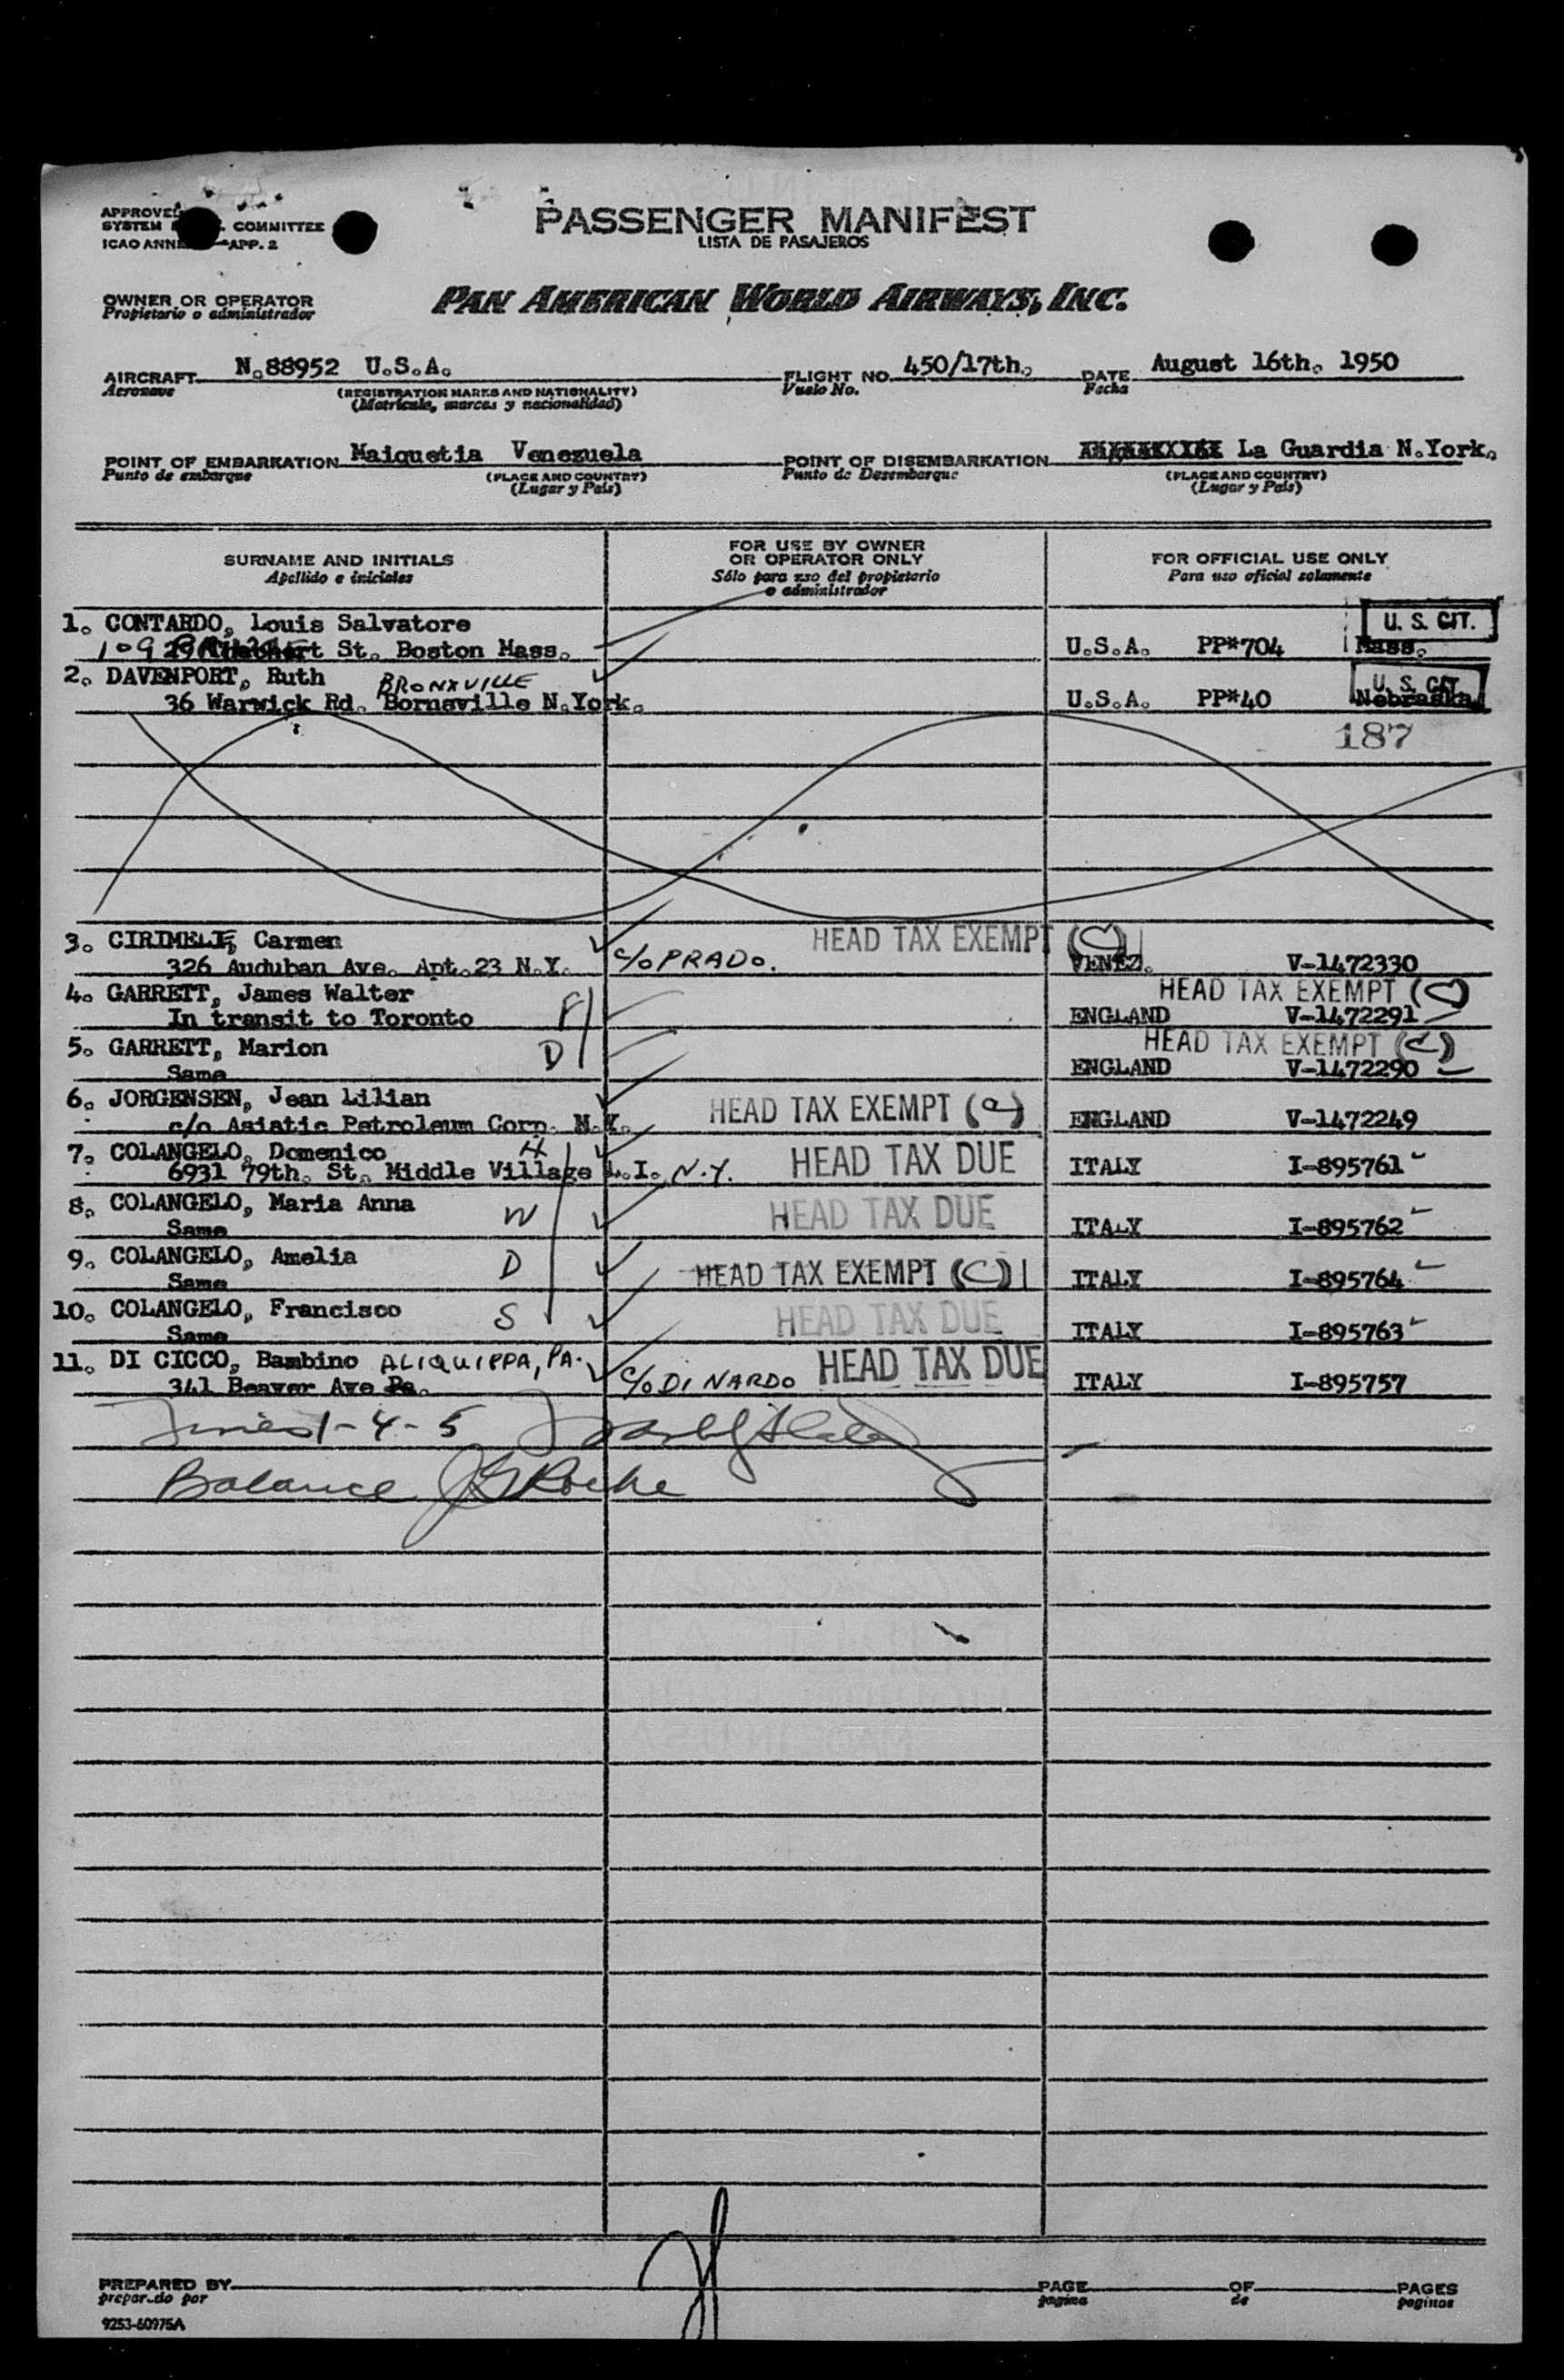 APPROVED COMMITTEE
SYSTEM
ICAO ANNE APP. 2
PASSENGER MANIFEST
LISTA DE PASAJEROS
OWNER OR OPERATOR
Propietario o administrador
PAN AMERICAN WORLD AIRWAYS, INC.
AIRCRAFT N.88952 U.S.A. FLIGHT NO. 450/17th. DATE August 16th. 1950
Aeronave (REGISTRATION MARKS AND NATIONALITY) Vuelo No. Fecha
(Matricula, marcas y nacionalidad)
POINT OF EMBARKATION Maiquetia Venezuela POINT OF DISEMBARKATION La Guardia N.York.
Punto de embarque (PLACE AND COUNTRY) Punto de Desembarque (PLACE AND COUNTRY)
(Lugar y País) (Lugar y País)
SURNAME AND INITIALS FOR USE BY OWNER OR OPERATOR ONLY FOR OFFICIAL USE ONLY
Apellido e iniciales Sólo para uso del propietario o administrador Para uso oficial solamente
1. CONTARDO, Louis Salvatore U. S. CIT.
109 St. Boston Mass. U.S.A. PP#704 Mass.
2. DAVENPORT, Ruth BRONXVILLE U. S. CIT.
36 Warwick Rd. Borneville N.York. U.S.A. PP#40 Nebraska
187
3. CIRIMELE, Carmen HEAD TAX EXEMPT (C)
326 Auduban Ave. Apt.23 N.Y. c/o PRADO. VENEZ. V-1472330
4. GARRETT, James Walter HEAD TAX EXEMPT (C)
In transit to Toronto F ENGLAND V-1472291
5. GARRETT, Marion D HEAD TAX EXEMPT
Same ENGLAND V-1472290
6. JORGENSEN, Jean Lilian HEAD TAX EXEMPT (a)
c/o Asiatic Petroleum Corp. N.Y. ENGLAND V-1472249
7. COLANGELO, Domenico H HEAD TAX DUE
6931 79th. St. Middle Village L.I. N.Y. ITALY I-895761
8. COLANGELO, Maria Anna W HEAD TAX DUE
Same ITALY I-895762
9. COLANGELO, Amelia D HEAD TAX EXEMPT (C)
Same ITALY I-895764
10. COLANGELO, Francisco S HEAD TAX DUE
Same ITALY I-895763
11. DI CICCO, Bambino ALIQUIPPA, PA. HEAD TAX DUE
341 Beaver Ave Pa. c/o DI NARDO ITALY I-895757
1-4-5
Balance J G Roche
PREPARED BY PAGE OF PAGES
preparado por pagina de paginas
9253-60975A